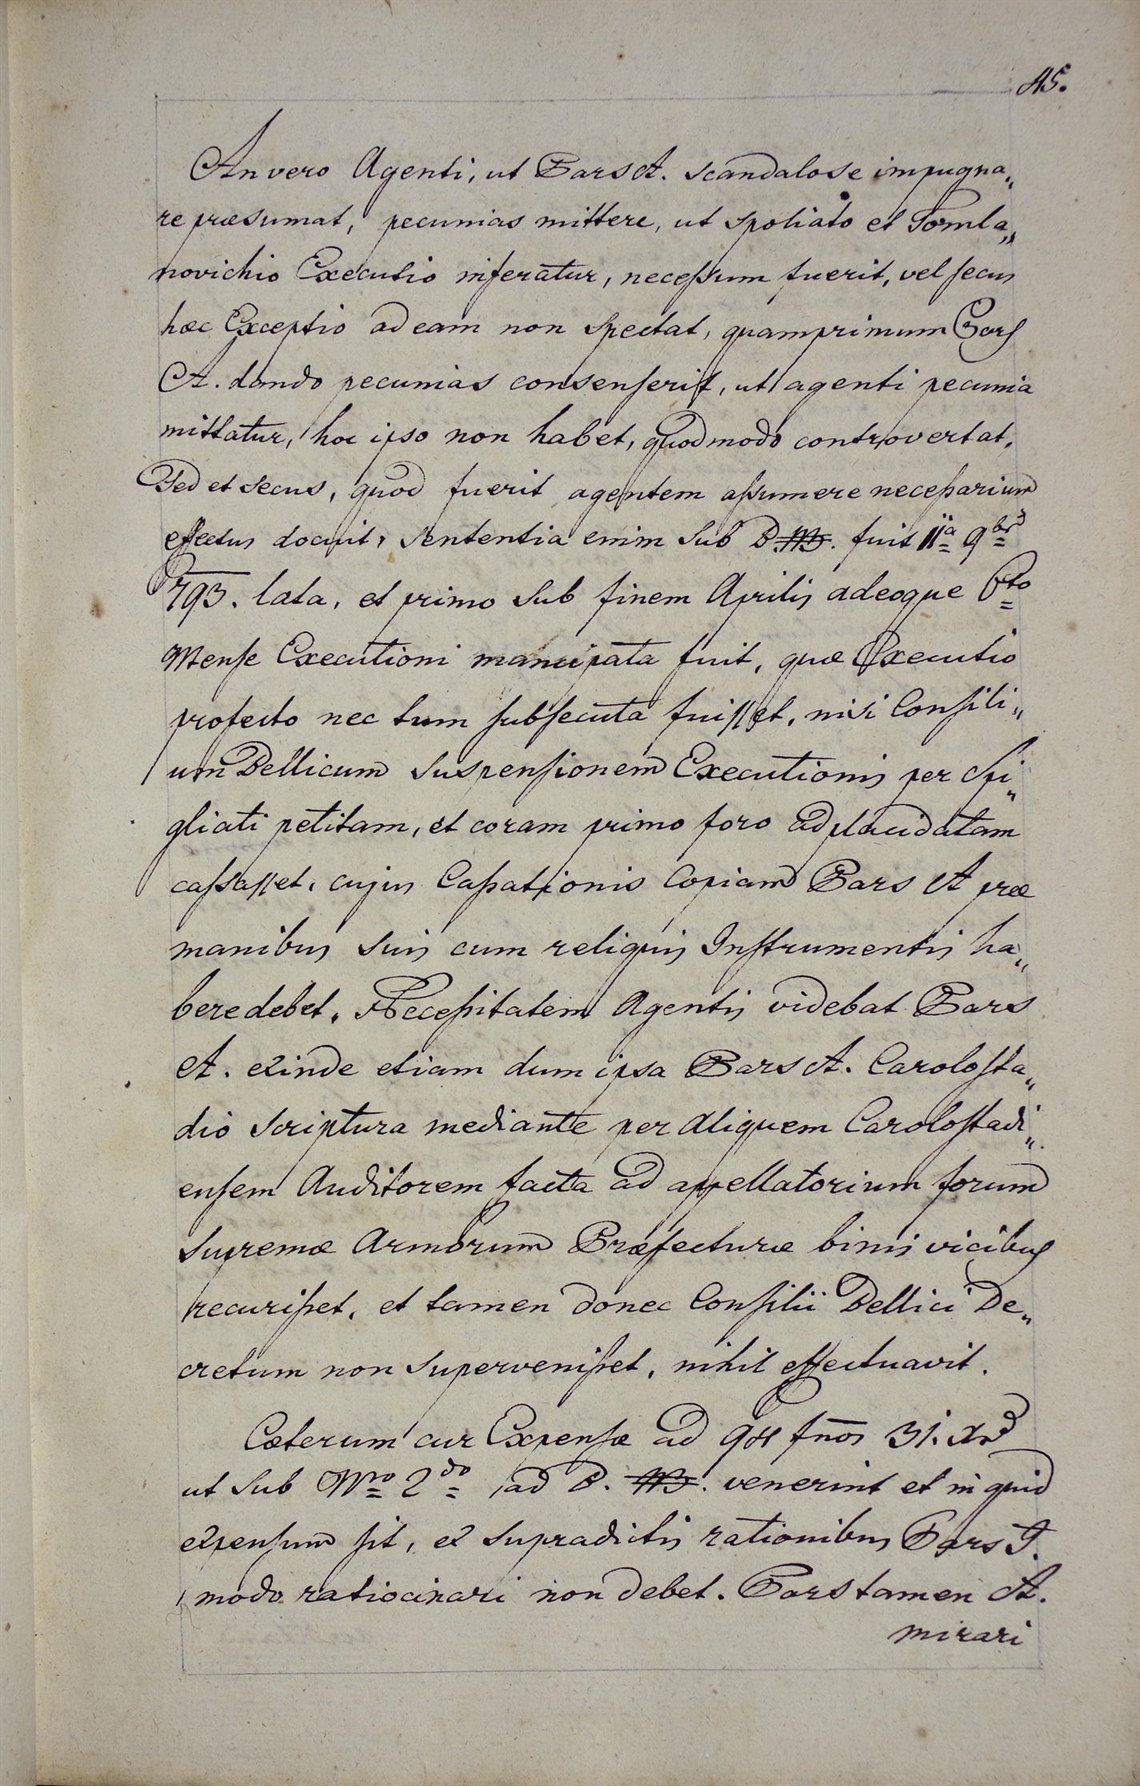 45.
An vero Agenti, ut Pars A. scandalose impugna„
re præsumat, pecunias mittere, ut spoliato et Tomla„
novichio Executio inferatur, necessum fuerit, vel secus
hæc Exceptio ad eam non spectat, quamprimum Pars
A. dando pecunias consenserit, ut agenti pecunia
mittatur, hoc ipso non habet, quod modo controvertat,
Sed et secus, quod fuerit agentem assumere necessarium
effectus docuit, Sententia enim sub D. fuit 11a 9bris
793. lata, et primo sub finem Aprilis adeoque 6to
Mense Executioni mancipata fuit, quæ Executio
profecto nec tum subsecuta fuisset, nisi Consili„
um Bellicum suspensionem Executionis per Spi„
gliati petitam, et coram primo foro adplacidatam
cassasset, cujus Cassationis Copiam Pars A præ
manibus suis cum reliquis Instrumentis ha„
bere debet. Necessitatem Agentis videbat Pars
A. exinde etiam dum ipsa Pars A. Carolosta„
dio scriptura mediante per aliquem Carolostadi„
ensem Auditorem facta ad appellatorium forum
Supremæ Armorum Præfecturæ binis vicibus
recurisset, et tamen donec Consilii Bellici De„
cretum non supervenisset, nihil effectuavit.
Cæterum cur Expensæ ad 98 fnos 31. xrs
ut sub Nro 2do ad D. venerint et in quid
expensum sit, ex supradictis rationibus Pars I.
modo ratiocinari non debet. Pars tamen A.
mirari